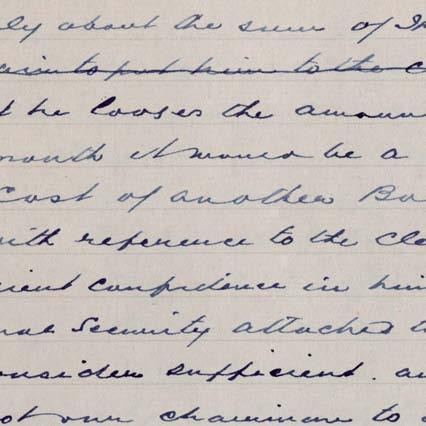 ly about the sum of
to put him to the
he looses the amoun
month it would be a
Cost of another Bo
with reference to the Cle
cient confidence in him
nal Security attached t
onsider sufficient. an
ot our chairman to